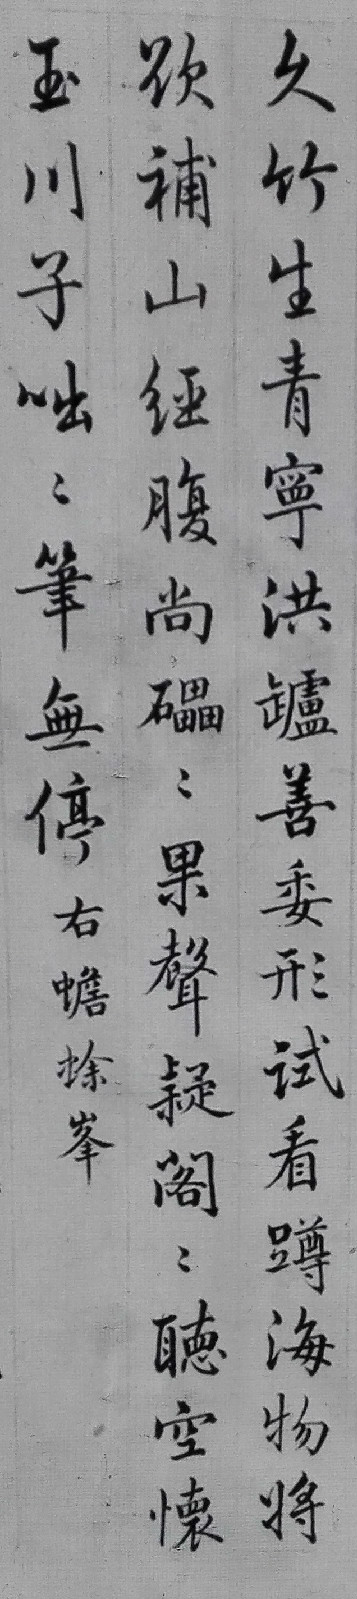 久竹生青寧洪罏善委形試看蹲海物將
欲補山經腹尚礧〻果聲疑閣〻聽空懷
玉川子咄〻筆無停右蟾蜍峯